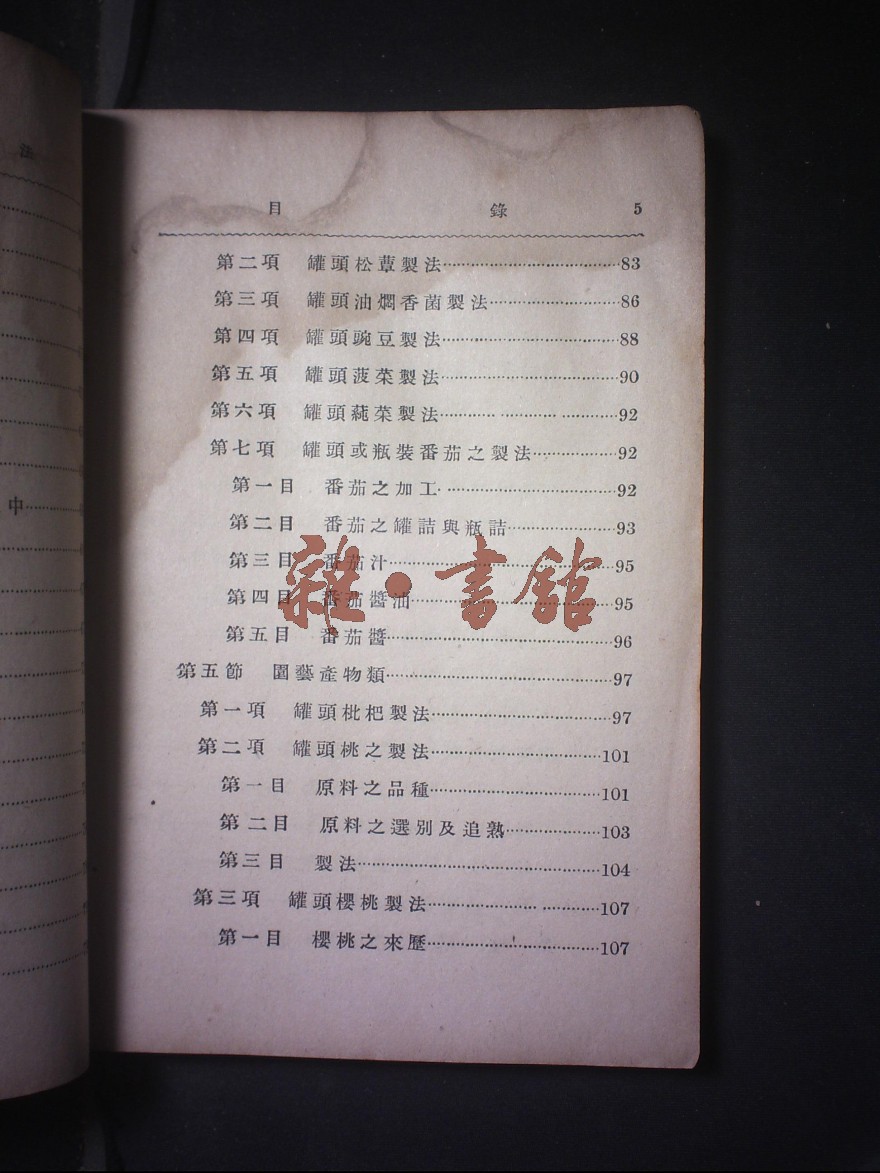 法
中
目 錄 5
第二項 罐頭松蕈製法 83
第三項 罐頭油燜香菌製法 86
第四項 罐頭豌豆製法 88
第五項 罐頭菠菜製法 90
第六項 罐頭蒓菜製法 92
第七項 罐頭或瓶裝番茄之製法 92
第一目 番茄之加工 92
第二目 番茄之罐詰與瓶詰 93
第三目 番茄汁 95
第四目 番茄醬油 95
第五目 番茄醬 96
第五節 園藝產物類 97
第一項 罐頭枇杷製法 97
第二項 罐頭桃之製法 101
第一目 原料之品種 101
第二目 原料之選別及追熟 103
第三目 製法 104
第三項 罐頭櫻桃製法 107
第一目 櫻桃之來歷 107
雜·書館